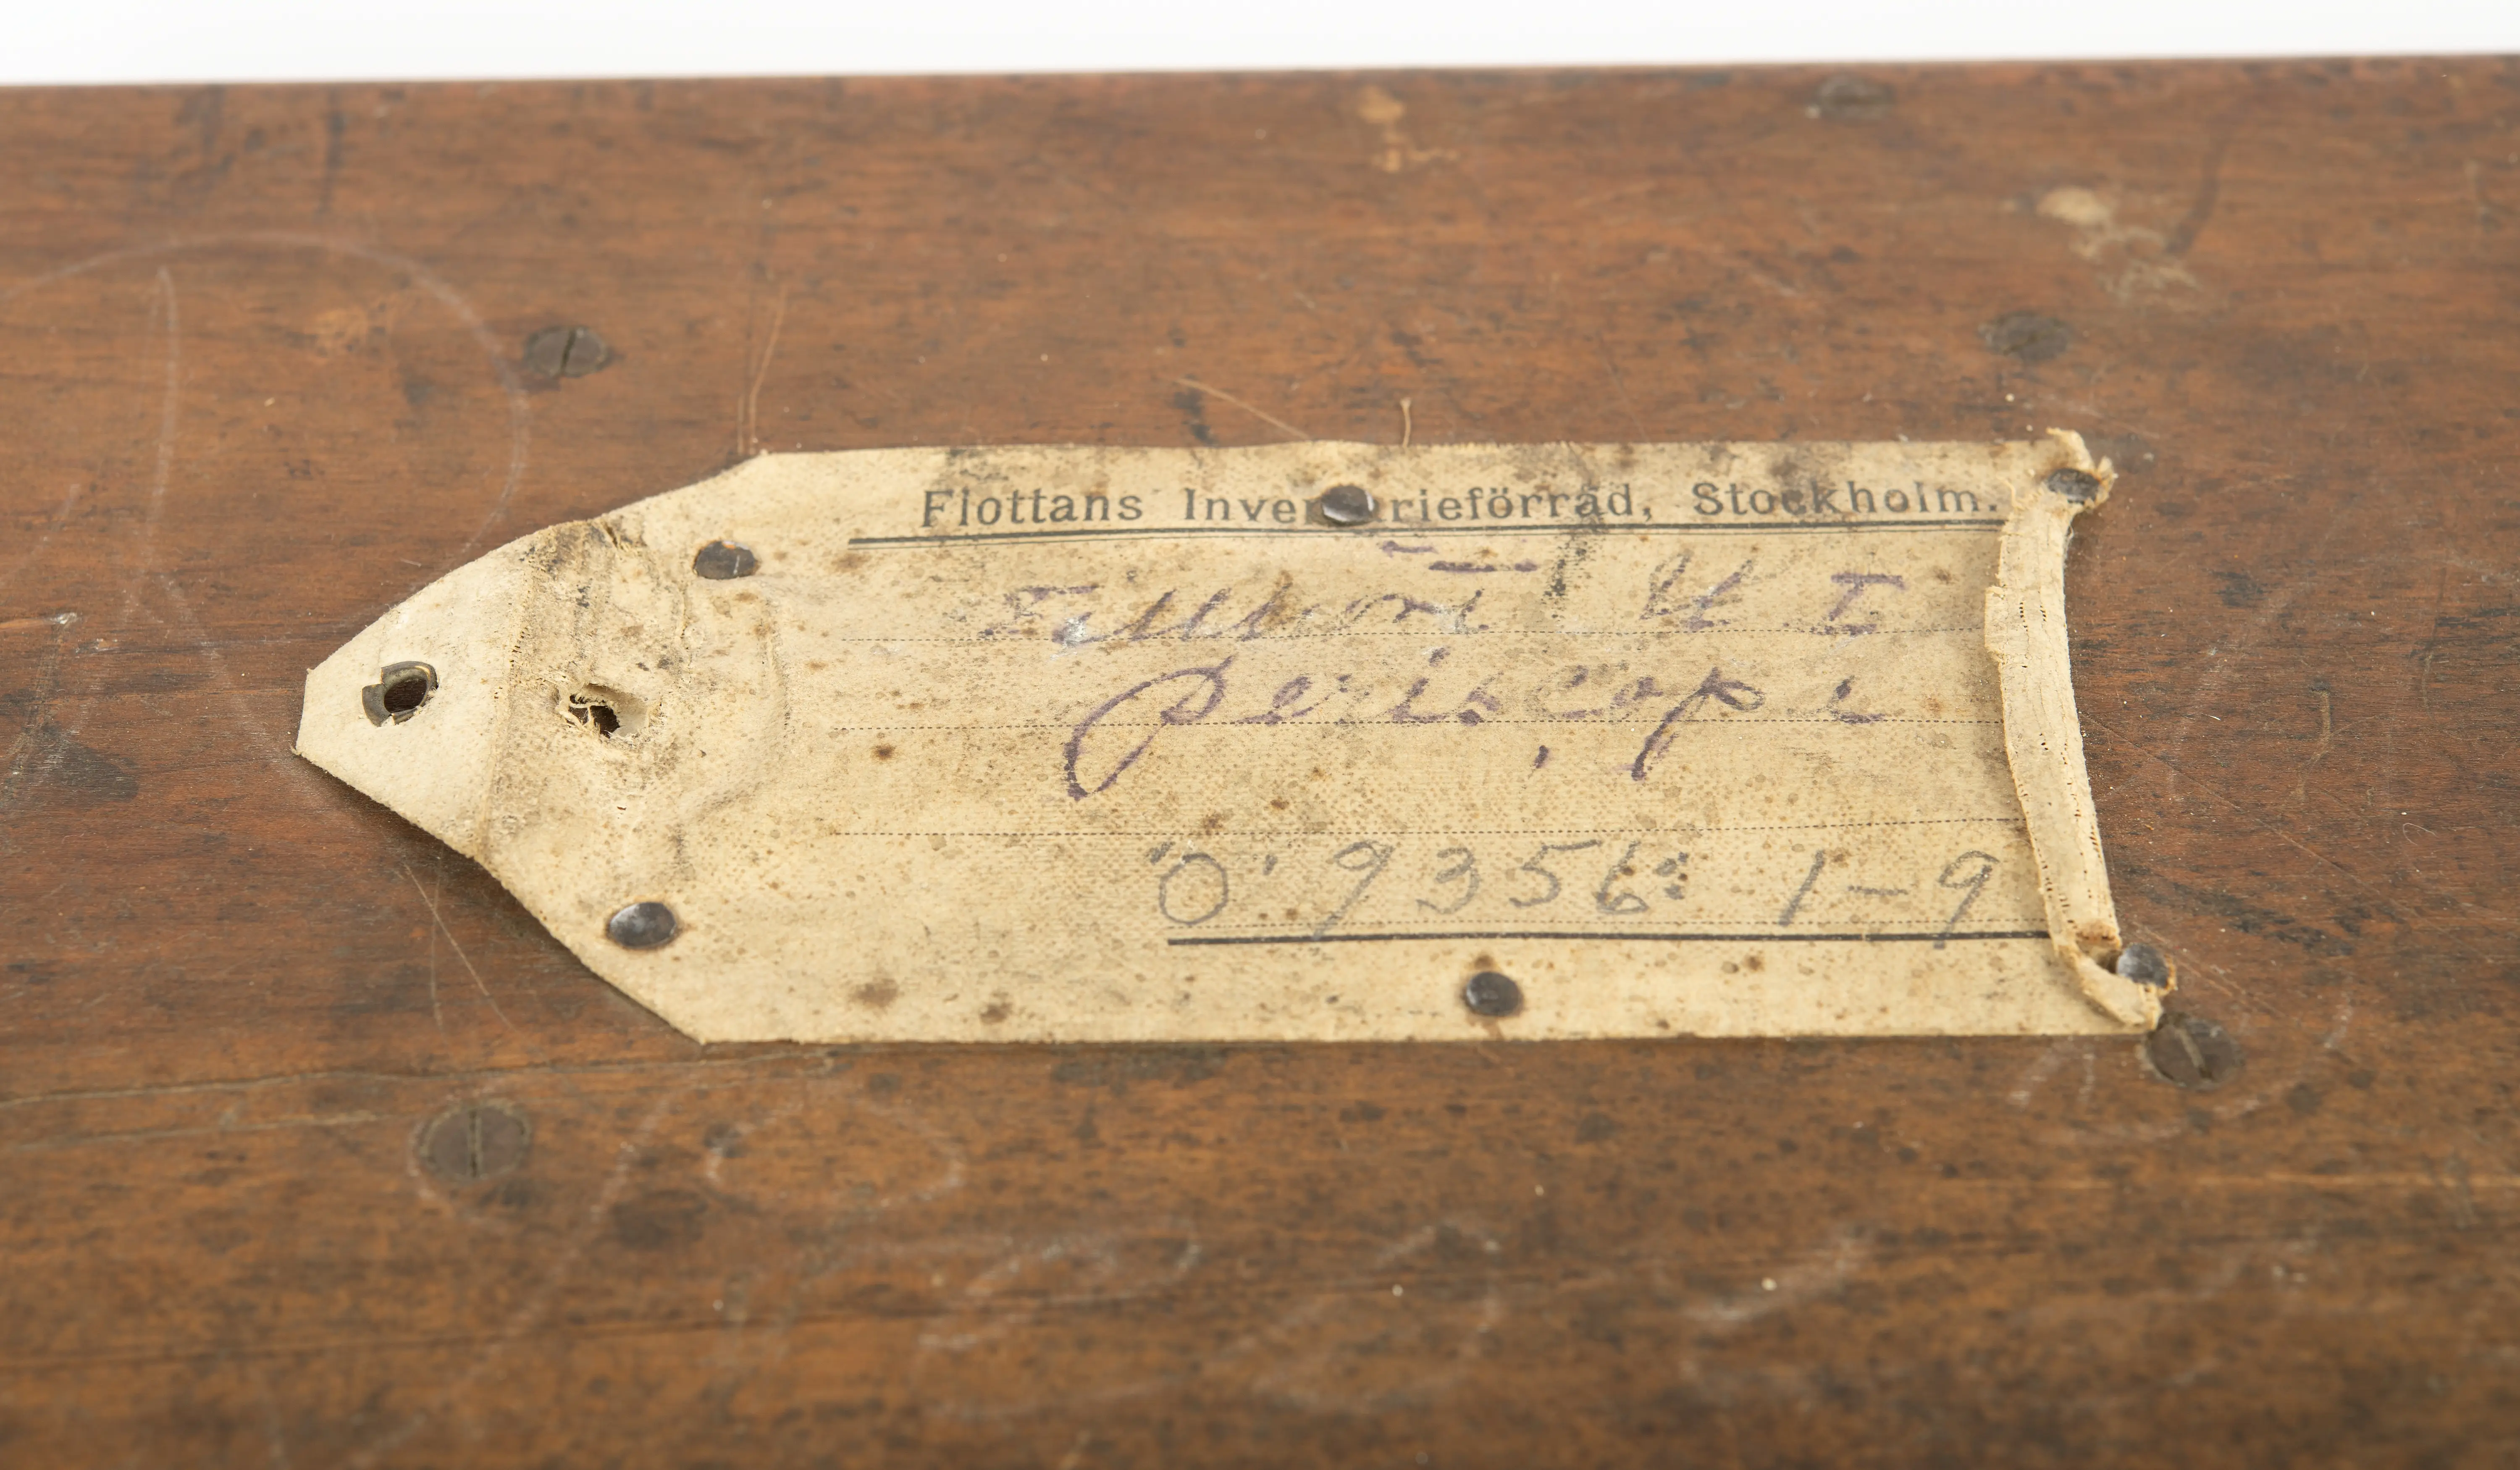 Flottans Inventarieförråd, Stockholm.
Periscope
"O". 9356: 1-9